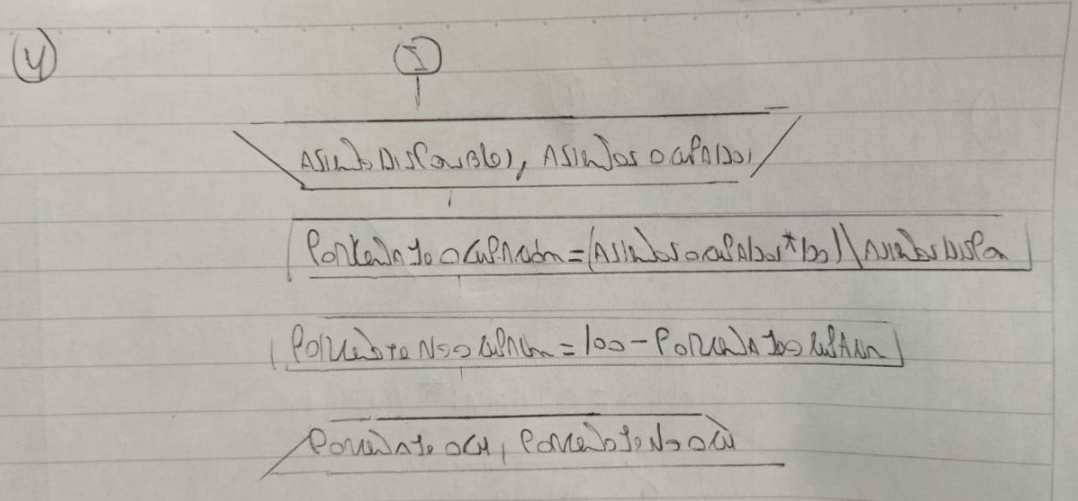 4
I
Asientos Disponibles, Asientos ocupados
Porcentaje ocupación = (Asientos ocupados * 100) \ Asientos Dispo
Porcentaje No ocupación = 100 - Porcentaje ocupación
Porcentaje ocu, Porcentaje No ocu